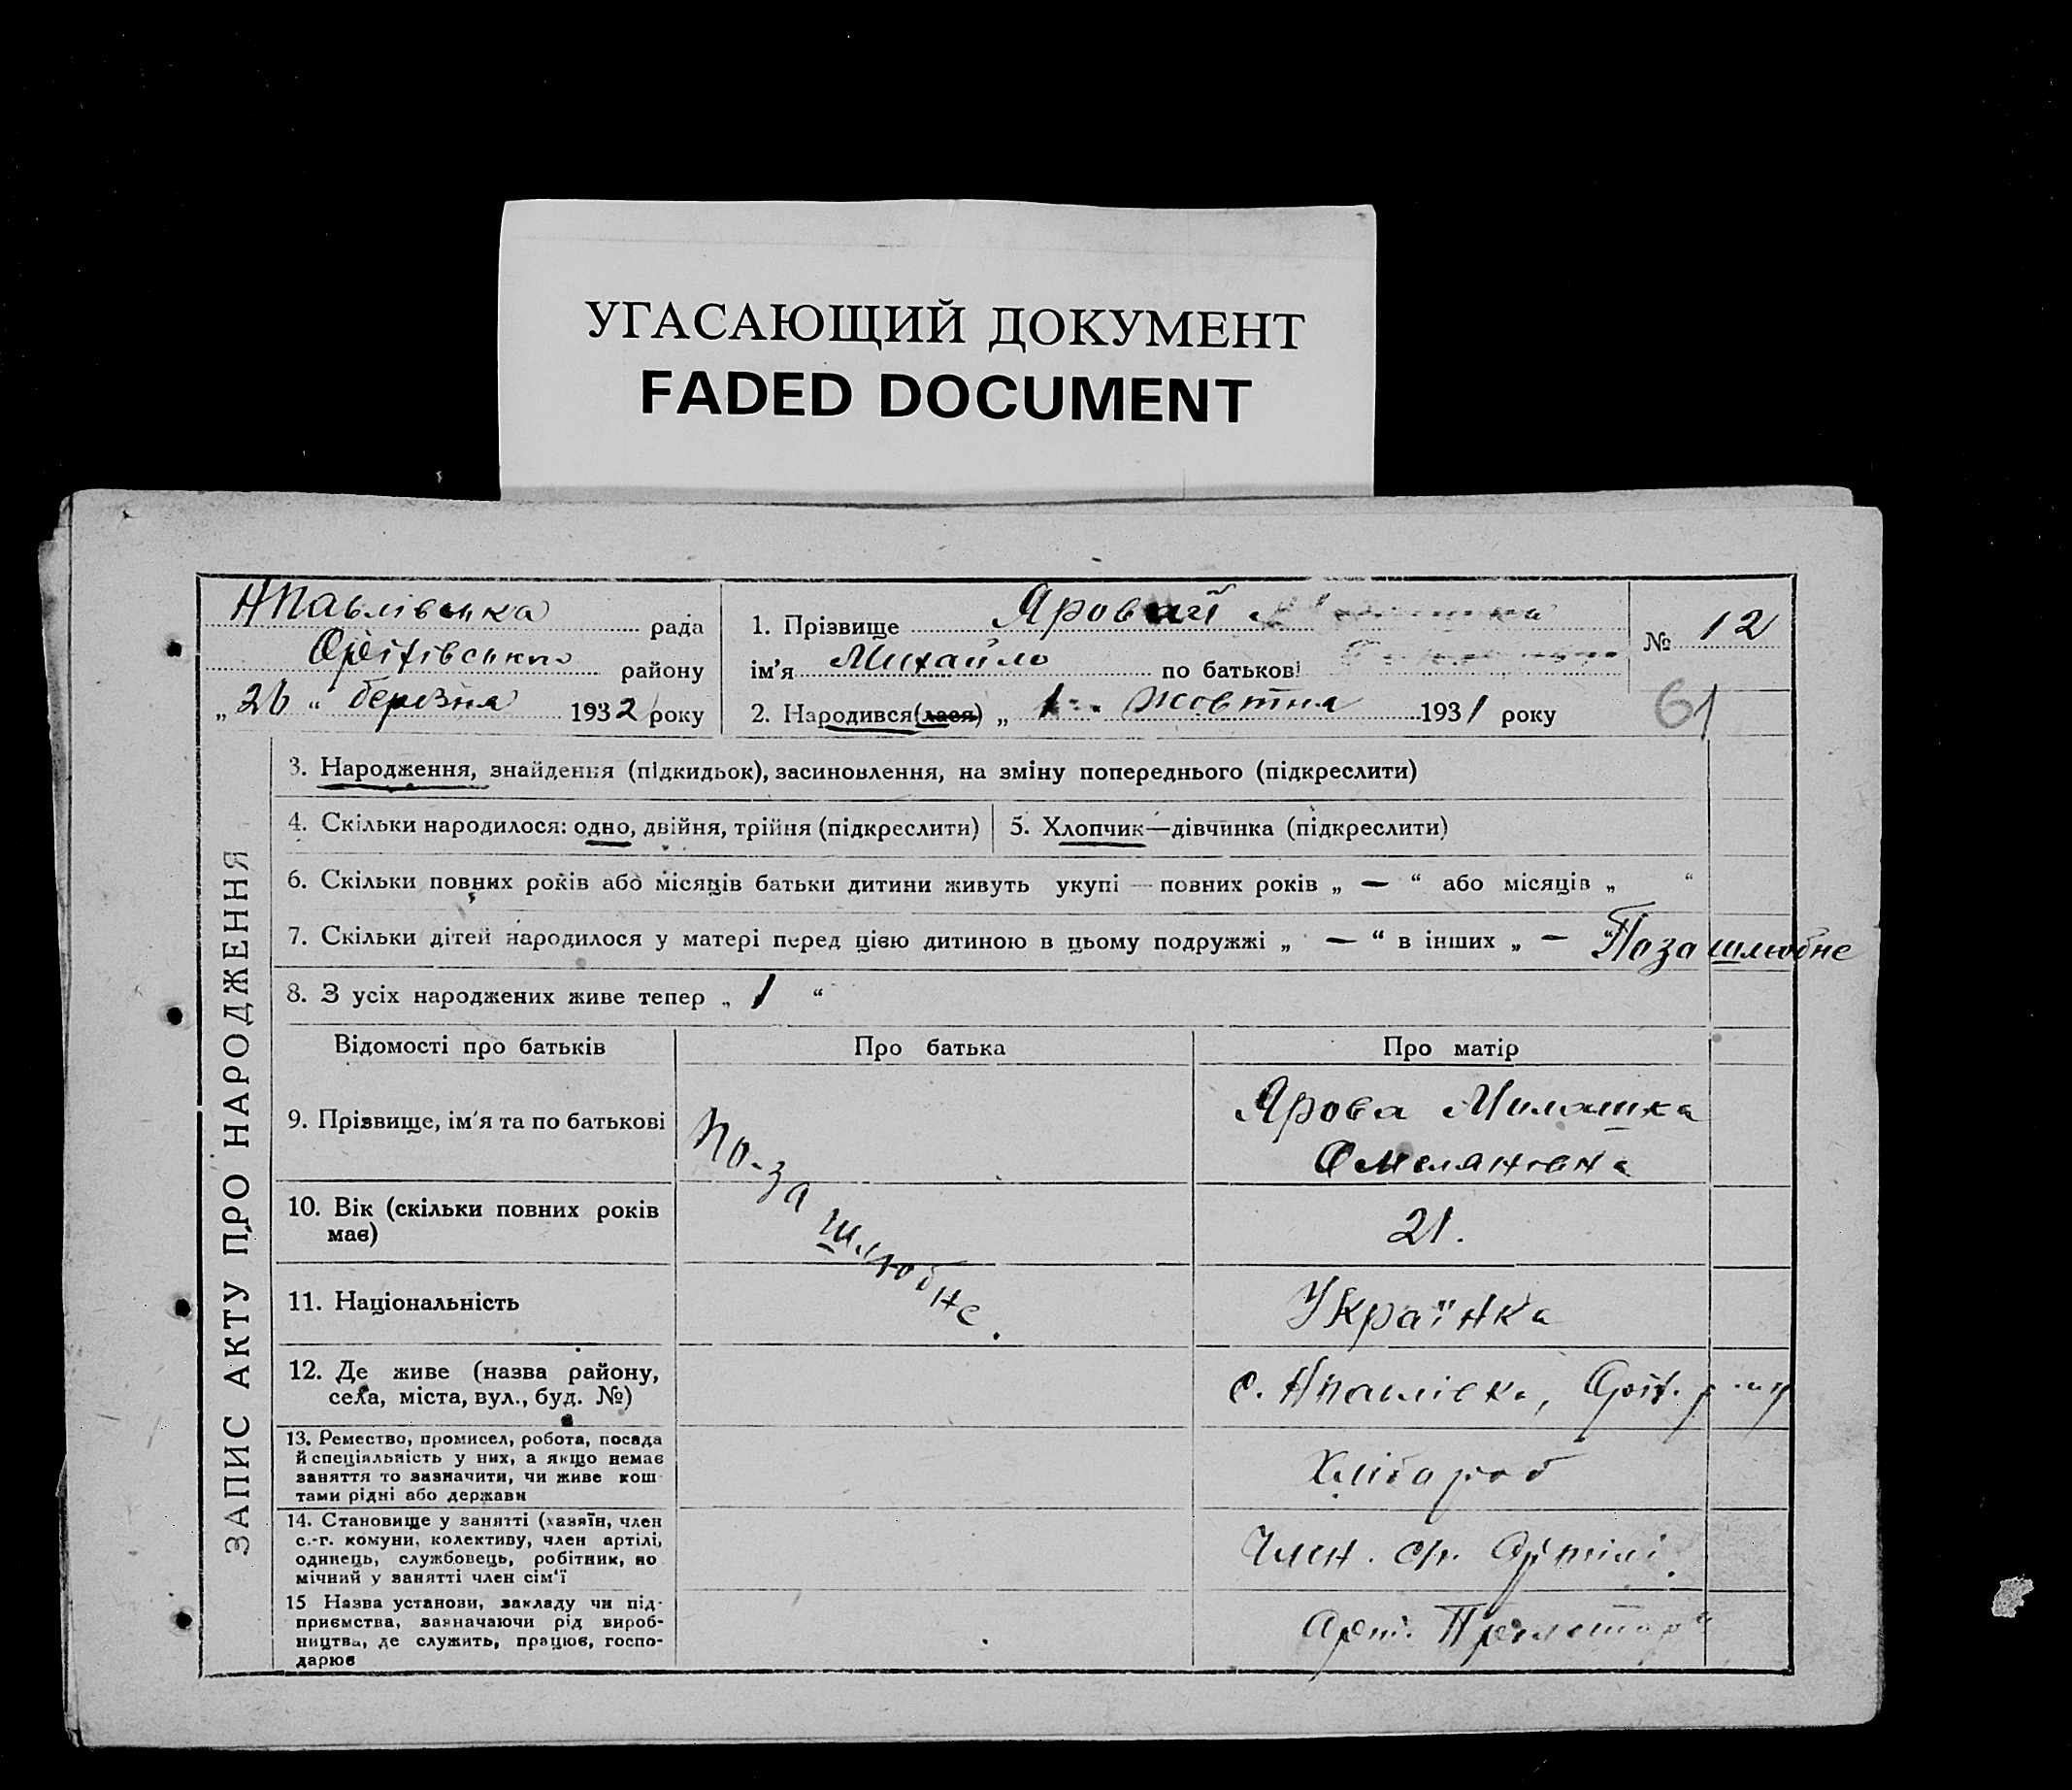 УГАСАЮЩИЙ ДОКУМЕНТ
FADED DOCUMENT
НПавлівська рада
Оріхівського району
„26“ березня 1932 року
1. Прізвище Яровий
ім’я Михайло по батькові
2. Народився(лася) „1“ Жовтня 1931 року
№ 12
61
ЗАПИС АКТУ ПРО НАРОДЖЕННЯ
3. Народження, знайдення (підкидьок), засиновлення, на зміну попереднього (підкреслити)
4. Скільки народилося: одно, двійня, трійня (підкреслити)
5. Хлопчик—дівчинка (підкреслити)
6. Скільки повних років або місяців батьки дитини живуть укупі — повних років „ — “ або місяців „ “
7. Скільки дітей народилося у матері перед цією дитиною в цьому подружжі „ — “ в інших „ — “ Поза шлюбне
8. З усіх народжених живе тепер „ 1 “
Відомості про батьків
Про батька
Про матір
9. Прізвище, ім’я та по батькові
По-за шлюбне.
Ярова Милашка
Омеляновна
10. Вік (скільки повних років
має)
21.
11. Національність
Українка
12. Де живе (назва району,
села, міста, вул., буд. №)
с. Нпавлівка, Оріх. р-ну
13. Ремество, промисел, робота, посада
й спеціяльність у них, а якщо немає
заняття то зазначити, чи живе кош
тами рідні або держави
Хлібороб
14. Становище у занятті (хазяїн, член
с.-г. комуни, колективу, член артілі,
одинець, службовець, робітник, по
мічний у занятті член сім‘ї
Член. с/г. Артілі.
15 Назва установи, закладу чи під-
приємства, зазначаючи рід вироб-
ництва, де служить, працює, госпо-
дарює
Арт.